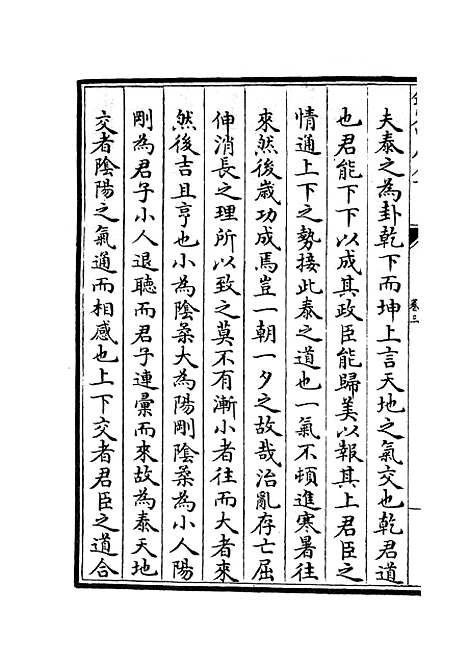 卷三
夫泰之為卦乾下而坤上言天地之氣交也乾君道
也君能下下以成其政臣能歸美以報其上君臣之
情通上下之勢接此泰之道也一氣不頓進寒暑往
來然後歳功成焉豈一朝一夕之故哉治亂存亡屈
伸消長之理所以致之莫不有漸小者往而大者來
然後吉且亨也小為陰柔大為陽剛陰柔為小人陽
剛為君子小人退聽而君子連彙而來故為泰天地
交者陰陽之氣通而相感也上下交者君臣之道合